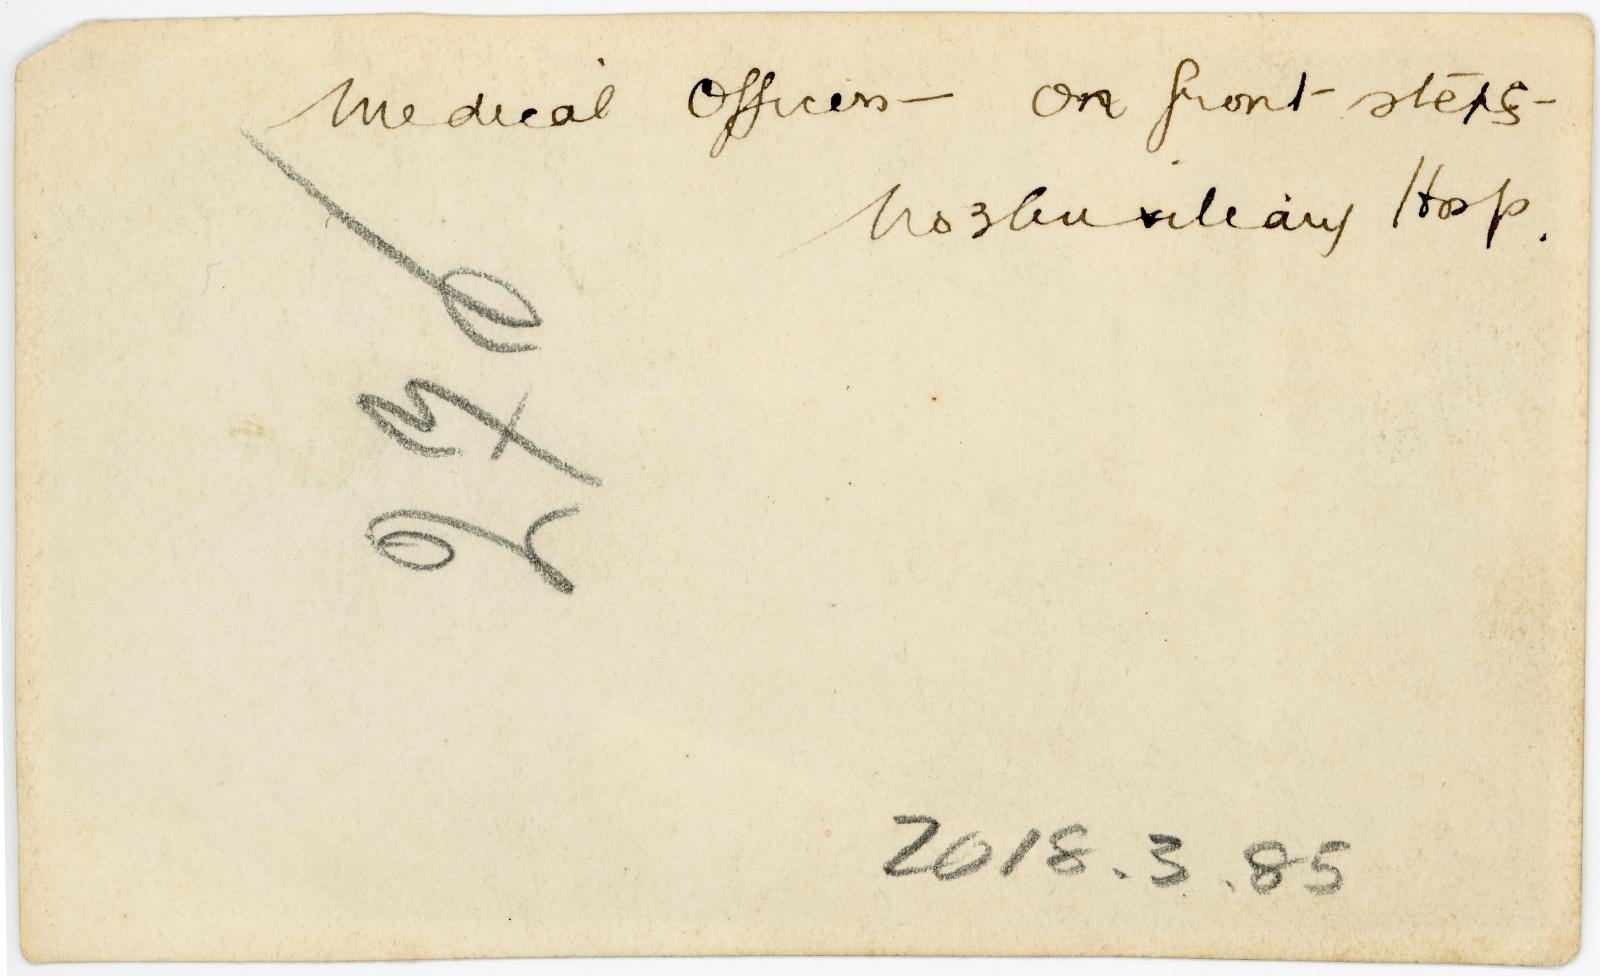 Medical Officers — on front steps —
No 3 Auxiliary Hosp.
2018.3.85